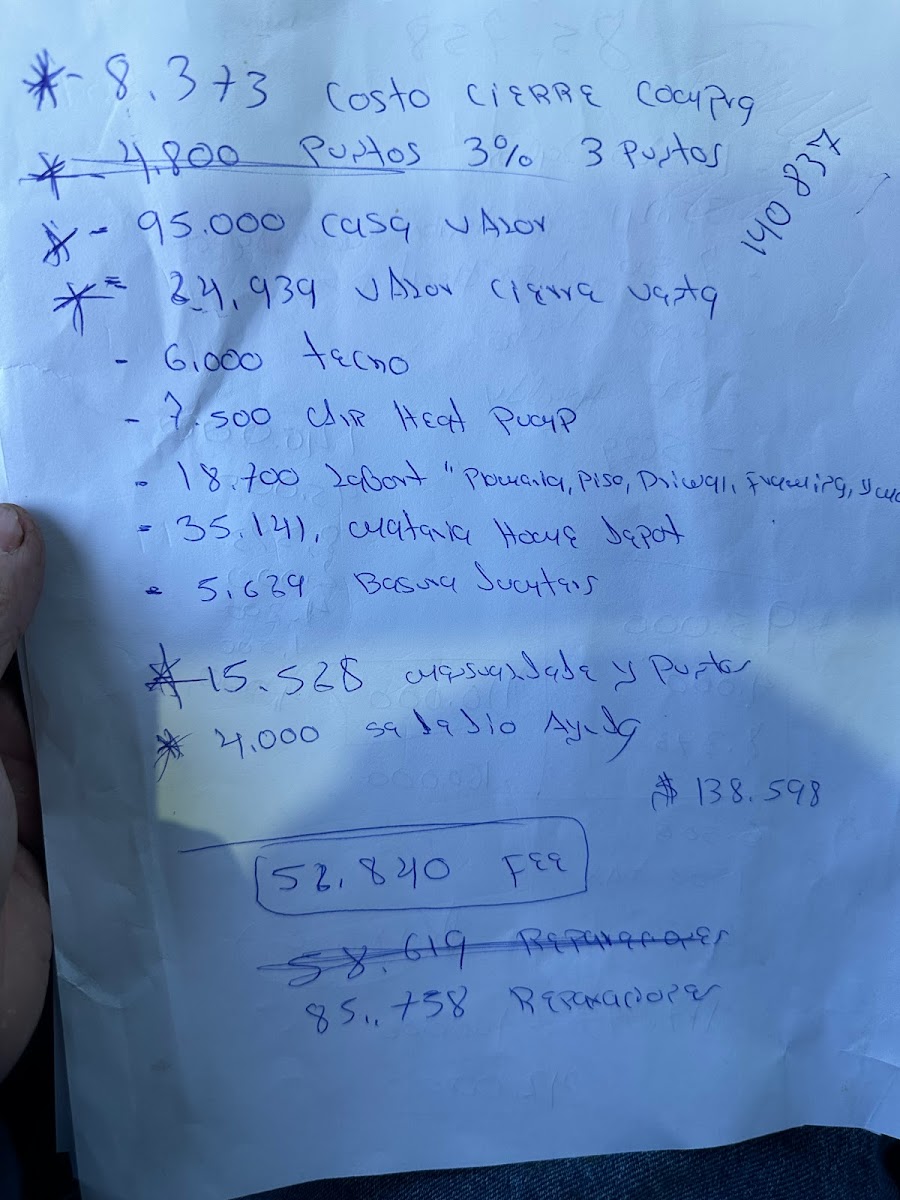 * - 8.373 Costo CIERRE Compra
* - 4.800 Puntos 3% 3 Puntos
140 837
* - 95.000 casa valor
* = 24.939 Valor cierre venta
- 6.000 techo
- 7.500 Air Heat Pump
- 18.700 Labort "Plomeria, Piso, Driwal, Framing, y
- 35.141. materia Home Depot
- 5.629 Basura Dumpters
* 15.528 mensualidade y Puntos
* 4.000 saladio Ayuda
$ 138.598
52.840 FEE
58.619 Reparaciones
85.758 Reparaciones